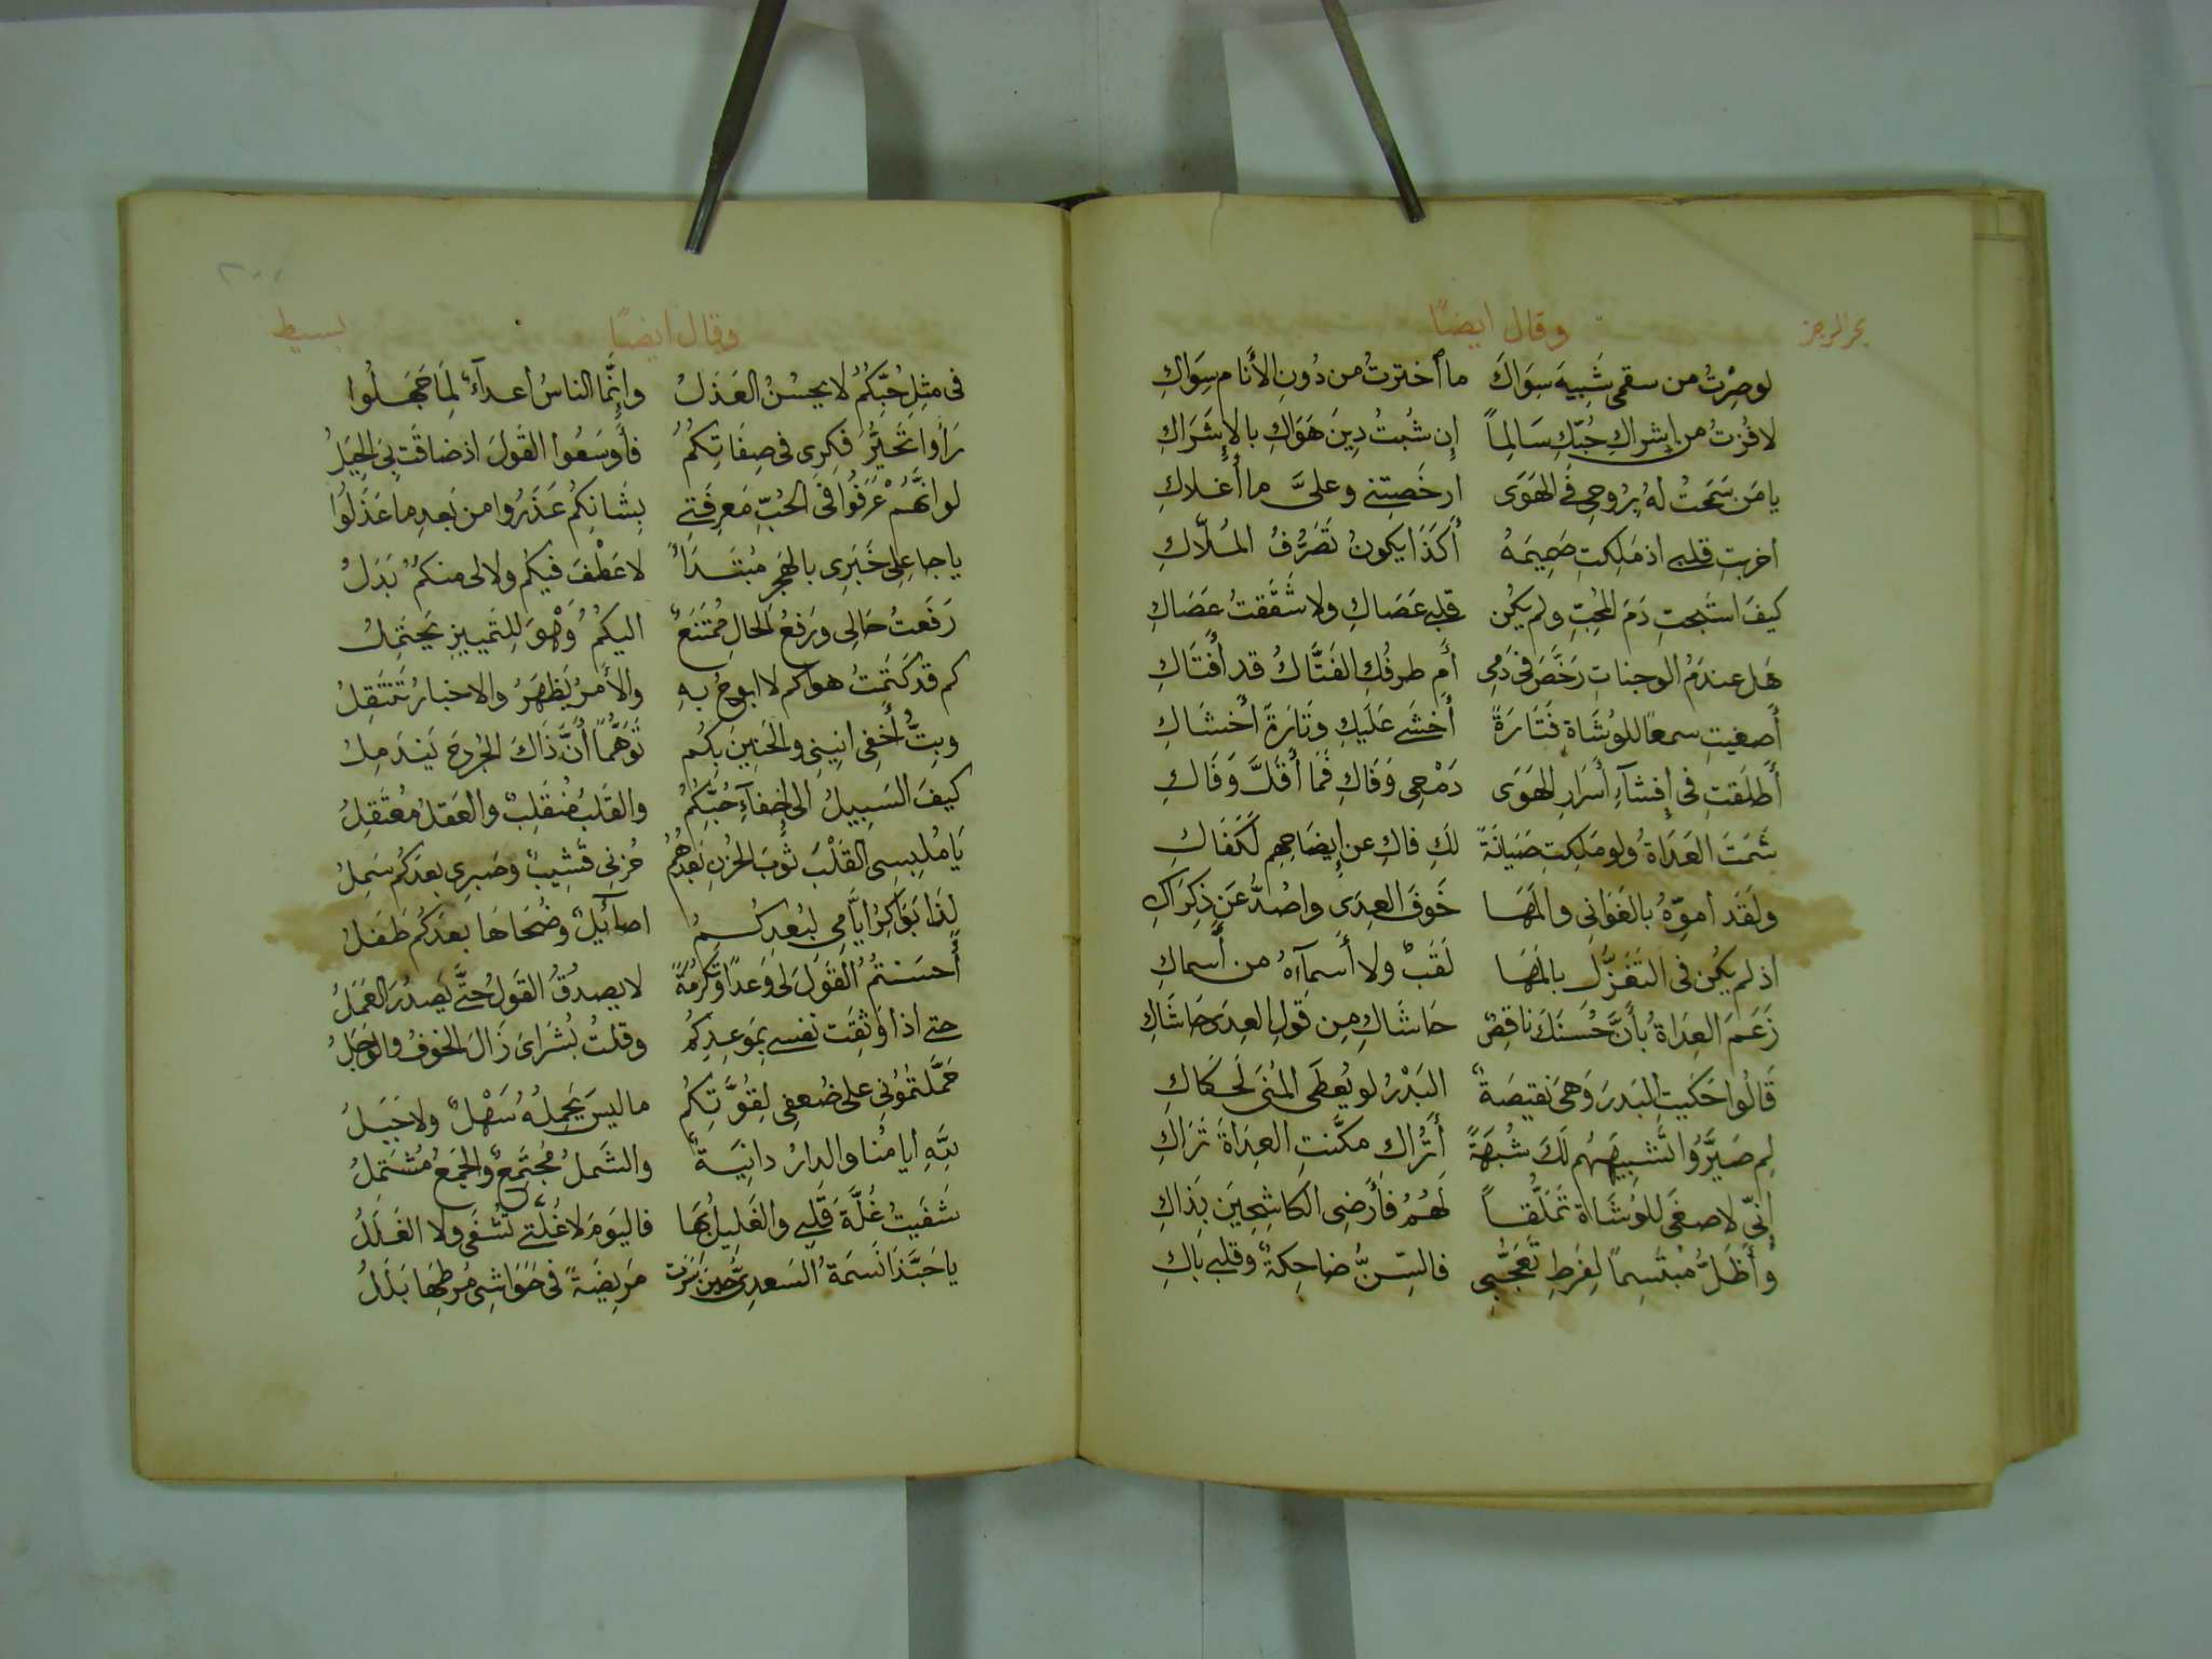 بحر الرجز
وقال ايضًا
لو صِرْتُ من سقمى شَبِيهَ سِوَاكَ ما أخترتُ من دُونِ الأَنام سِوَاكِ
لا فُزتُ من إشراكِ حُبّكِ سَالِماً إن شُبتُ دِينَ هَوَاكِ بالإِشَراكِ
يا مَن سَمَحتُ لهُ بِرُوحِى فى الهَوَى ارخَصتِنى وعلىَّ ما أغلاكِ
اخربتِ قلبى اذ مَلِكتِ صَمِيمَهُ أَكَذَا يكونُ تَصَرُّفُ المُلّاكِ
كيفَ استَبحتِ دَمَ المُحِبِّ ولم يكُن قلبى عَصَاكِ ولا شَقَقتُ عَصَاكِ
هَل عندَمُ الوجناتِ رَخَّصَ فى دَمِى أَم طرفُكِ الفَتَّاكُ قد أفتَاكِ
أَصغيتِ سمعاً للوُشَاة فَتَارَةً أخشَى عَلَيكِ وَتَارَةً أخشَاكِ
أَطلَقتِ فى إفشآءِ أَسرَارِ الهَوَى دَمْعِى وَفَاكِ فَمَا أقَلَّ وَفَاكِ
شَمَتَ العَدَاةُ ولو مَلِكتِ صَيَانَةً لكِ فاكِ عن إيضَاحِهِم لَكَفَاكِ
ولَقَد اموّهُ بالغَوَانى والمَهَا خَوفَ العِدَى واصُدُّ عَن ذِكرَاكِ
اذ لم يكُن فى التغَزُّل بالمَهَا لَقَبٌ ولا أَسمآءُ من أَسماكِ
زَعَمَ العِدَاةُ بأَنَّ حُسنَكَ ناقِصٌ حَاشَاكِ مِن قولِ العِدَى حَاشَاكِ
قَالُوا حَكَيتِ البَدرَ وَهىَ نَقيصَةٌ البَدْرُ لو يُعطَى المُنَى لَحَكَاكِ
لِم صَيَّرُوا تَشبِيهَهُم لَكَ شُبهَةً أَتُرَاكِ مكَّنتِ العِدَاةَ تَرَاكِ
إِنّى لاصغَى للوُشَاة تَمَلُّقاً لَهُمُ فأرضِى الكاشِحِينَ بِذَاكِ
وأَظَلُّ مُبتَسِماً لِفَرطِ تَعَجُّبِى فالسِّنُّ ضاحِكةٌ وقلبى باكِ
٢٠٠
وقال ايضًا
بسيط
فى مثِلِ حُبِّكُمُ لا يحسُنُ العَذَلُ وإِنَّما الناسُ أعدآءٌ لِمَا جَهِلُوا
رَأوا تَحَيُّرَ فكرِى فى صِفَاتِكُمُ فأَوسَعُوا القَولَ اذ ضاقَت بِىَ الحِيَلُ
لو انَّهُم عَرَفُوا فى الحُبِّ مَعرِفَتى بِشَانِكُم عَذَرُوا من بَعدِ ما عَذَلُوا
يا جاعِلى خَبَرِى بالهَجر مُبتَدَأً لا عَطفَ فيكُم ولا لى منكُمُ بَدَلُ
رَفَعتُ حَالى ورَفعُ الحالِ مُمتَنَعٌ اليكُمُ وَهْوَ للِتَّميِيزِ يَحتَمِلُ
كم قد كَتَمتُ هواكم لا ابوحُ بهِ والأَمرُ يَظهَرُ والاخبارُ تَنتَقِلُ
وبِتُّ أُخفِى انِينِى والحَنِينَ بكُم تَوَهُّماً أنَّ ذَاكَ الجُرحَ يَندَمِلُ
كيفَ السَبِيلُ الى إخفآءِ حُبِّكُمُ والقَلبُ مُنقَلِبٌ والعَقلُ مُعتَقَلُ
يَا مُلبِسِى القَلْبَ ثَوبَ الحُزنِ بَعدَهُمُ حُزنِى قَشِيبٌ وصَبرِى بعدَكُم سَمِلُ
لِذَا بَوَاكِرُ ايَّامِى لبُعدِكُمُ اصآئِيلٌ وضُحَاهَا بعدَكُم طَفَلُ
أَحسَنتُمُ القَولَ لى وَعداً وتَكرُمَةً لا يصدُقُ القَولُ حتَّى يَصدُرَ العَمَلُ
حتى اذا وَثِقَت نفسى بمَوعِدِكُم وقلتُ بُشَراىَ زَالَ الخوفُ والوَجَلُ
حَمَّلتمُونى على ضُعفِى لِقُوَّتِكُم ما ليسَ يَحمِلُهُ سَهْلٌ ولا جَبَلُ
لِلّهِ ايامُنا والدارُ دانِيَةٌ والشَملُ مُجتَمِعٌ والجَمعُ مُشتَمِلُ
شَفَيتُ غُلَّةَ قَلبِى والغَلِيلُ بهَا فاليَومَ لا غُلّتى تُشفَى ولا الغَلَلُ
يا حَبَّذا نَسمَةُ السَعدِىِّ حينَ سَرَت مَرِيضَةً فى حَوَاشِى مُرطِهَا بَلَلُ